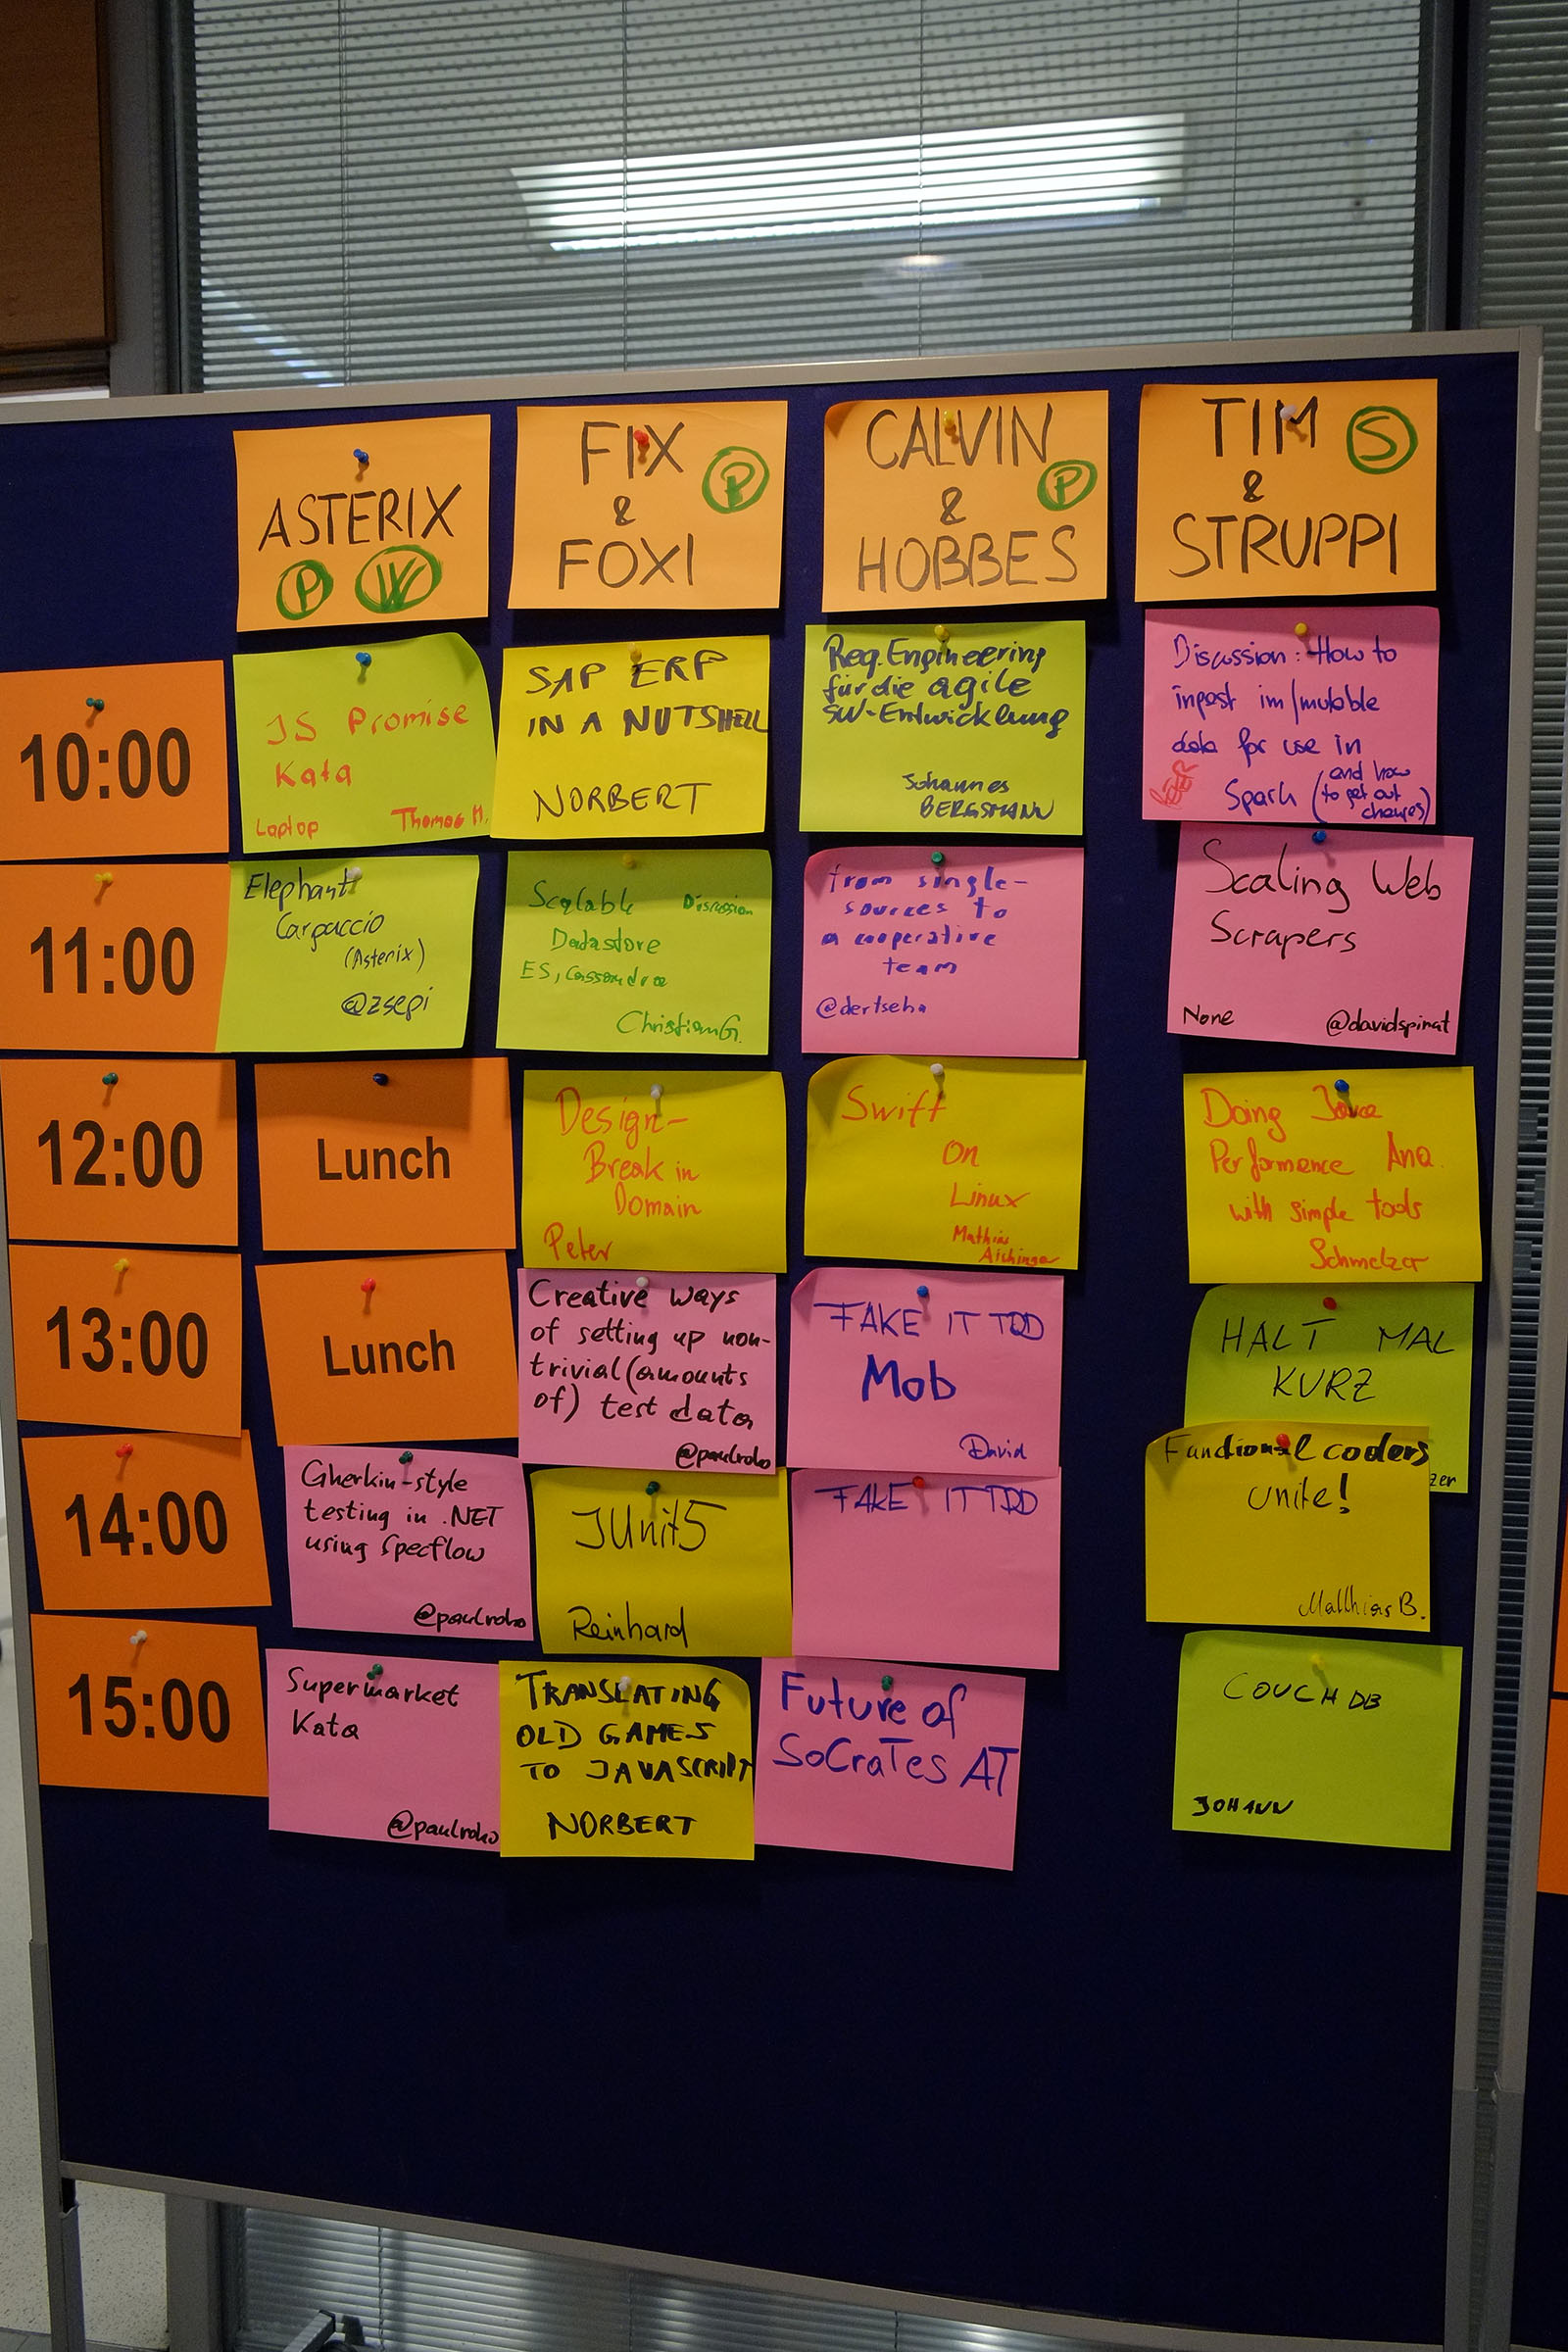 ASTERIX
P W
FIX
&
FOXI
P
CALVIN
&
HOBBES
P
TIM
&
STRUPPI
S
10:00
JS Promise
Kata
Laptop Thomas M.
SAP ERP
IN A NUTSHELL
NORBERT
Req. Engineering
für die agile
SW-Entwicklung
Johannes
BERGSMANN
Discussion: How to
ingest im/mutable
data for use in
Spark (and how
to get out
changes)
11:00
Elephant
Carpaccio
(Asterix)
@zsepi
Scalable Discussion
Datastore
ES, Cassandra
Christian G.
from single-
sources to
a cooperative
team
@dertseha
Scaling Web
Scrapers
None @davidspinat
12:00
Lunch
Design-
Break in
Domain
Peter
Swift
On
Linux
Mathias
Aichinger
Doing Java
Performance Ana.
with simple tools
Schmelzer
13:00
Lunch
Creative ways
of setting up non-
trivial (amounts
of) test data
@paulroho
FAKE IT TDD
Mob
David
HALT MAL
KURZ
zer
14:00
Gherkin-style
testing in .NET
using Specflow
@paulroho
JUnit5
Reinhard
FAKE IT TDD
Functional coders
unite!
Matthias B.
15:00
Supermarket
Kata
@paulroho
TRANSLATING
OLD GAMES
TO JAVASCRIPT
NORBERT
Future of
SoCraTes AT
COUCH DB
JOHANN